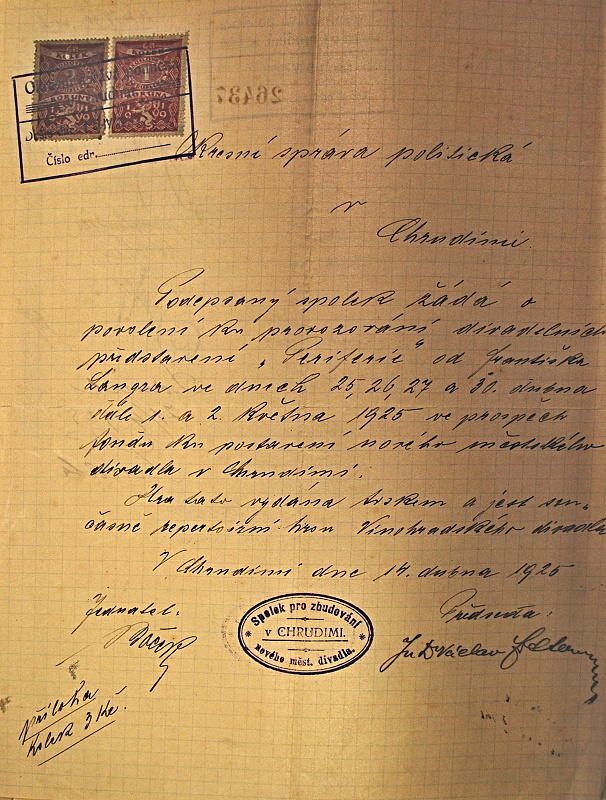 26487
Číslo edr.
Okresní správa politická
v
Chrudimi.
Podepsaný spolek žádá o
povolení ku provozování divadelních
představení „Periferie" od Františka
Langra ve dnech 25, 26, 27 a 30. dubna
dále 1. a 2. května 1925 ve prospěch
fondu ku postavení nového městského
divadla v Chrudimi.
Hra tato vydána tiskem a jest sou-
časně repertoirní hrou Vinohradského divadla
V Chrudimi dne 14. dubna 1925
Jednatel:
Předseda:
Spolek pro zbudování
v CHRUDIMI.
nového měst. divadla.
JUDr Václav
Příloha
Kolek 3 Kč.